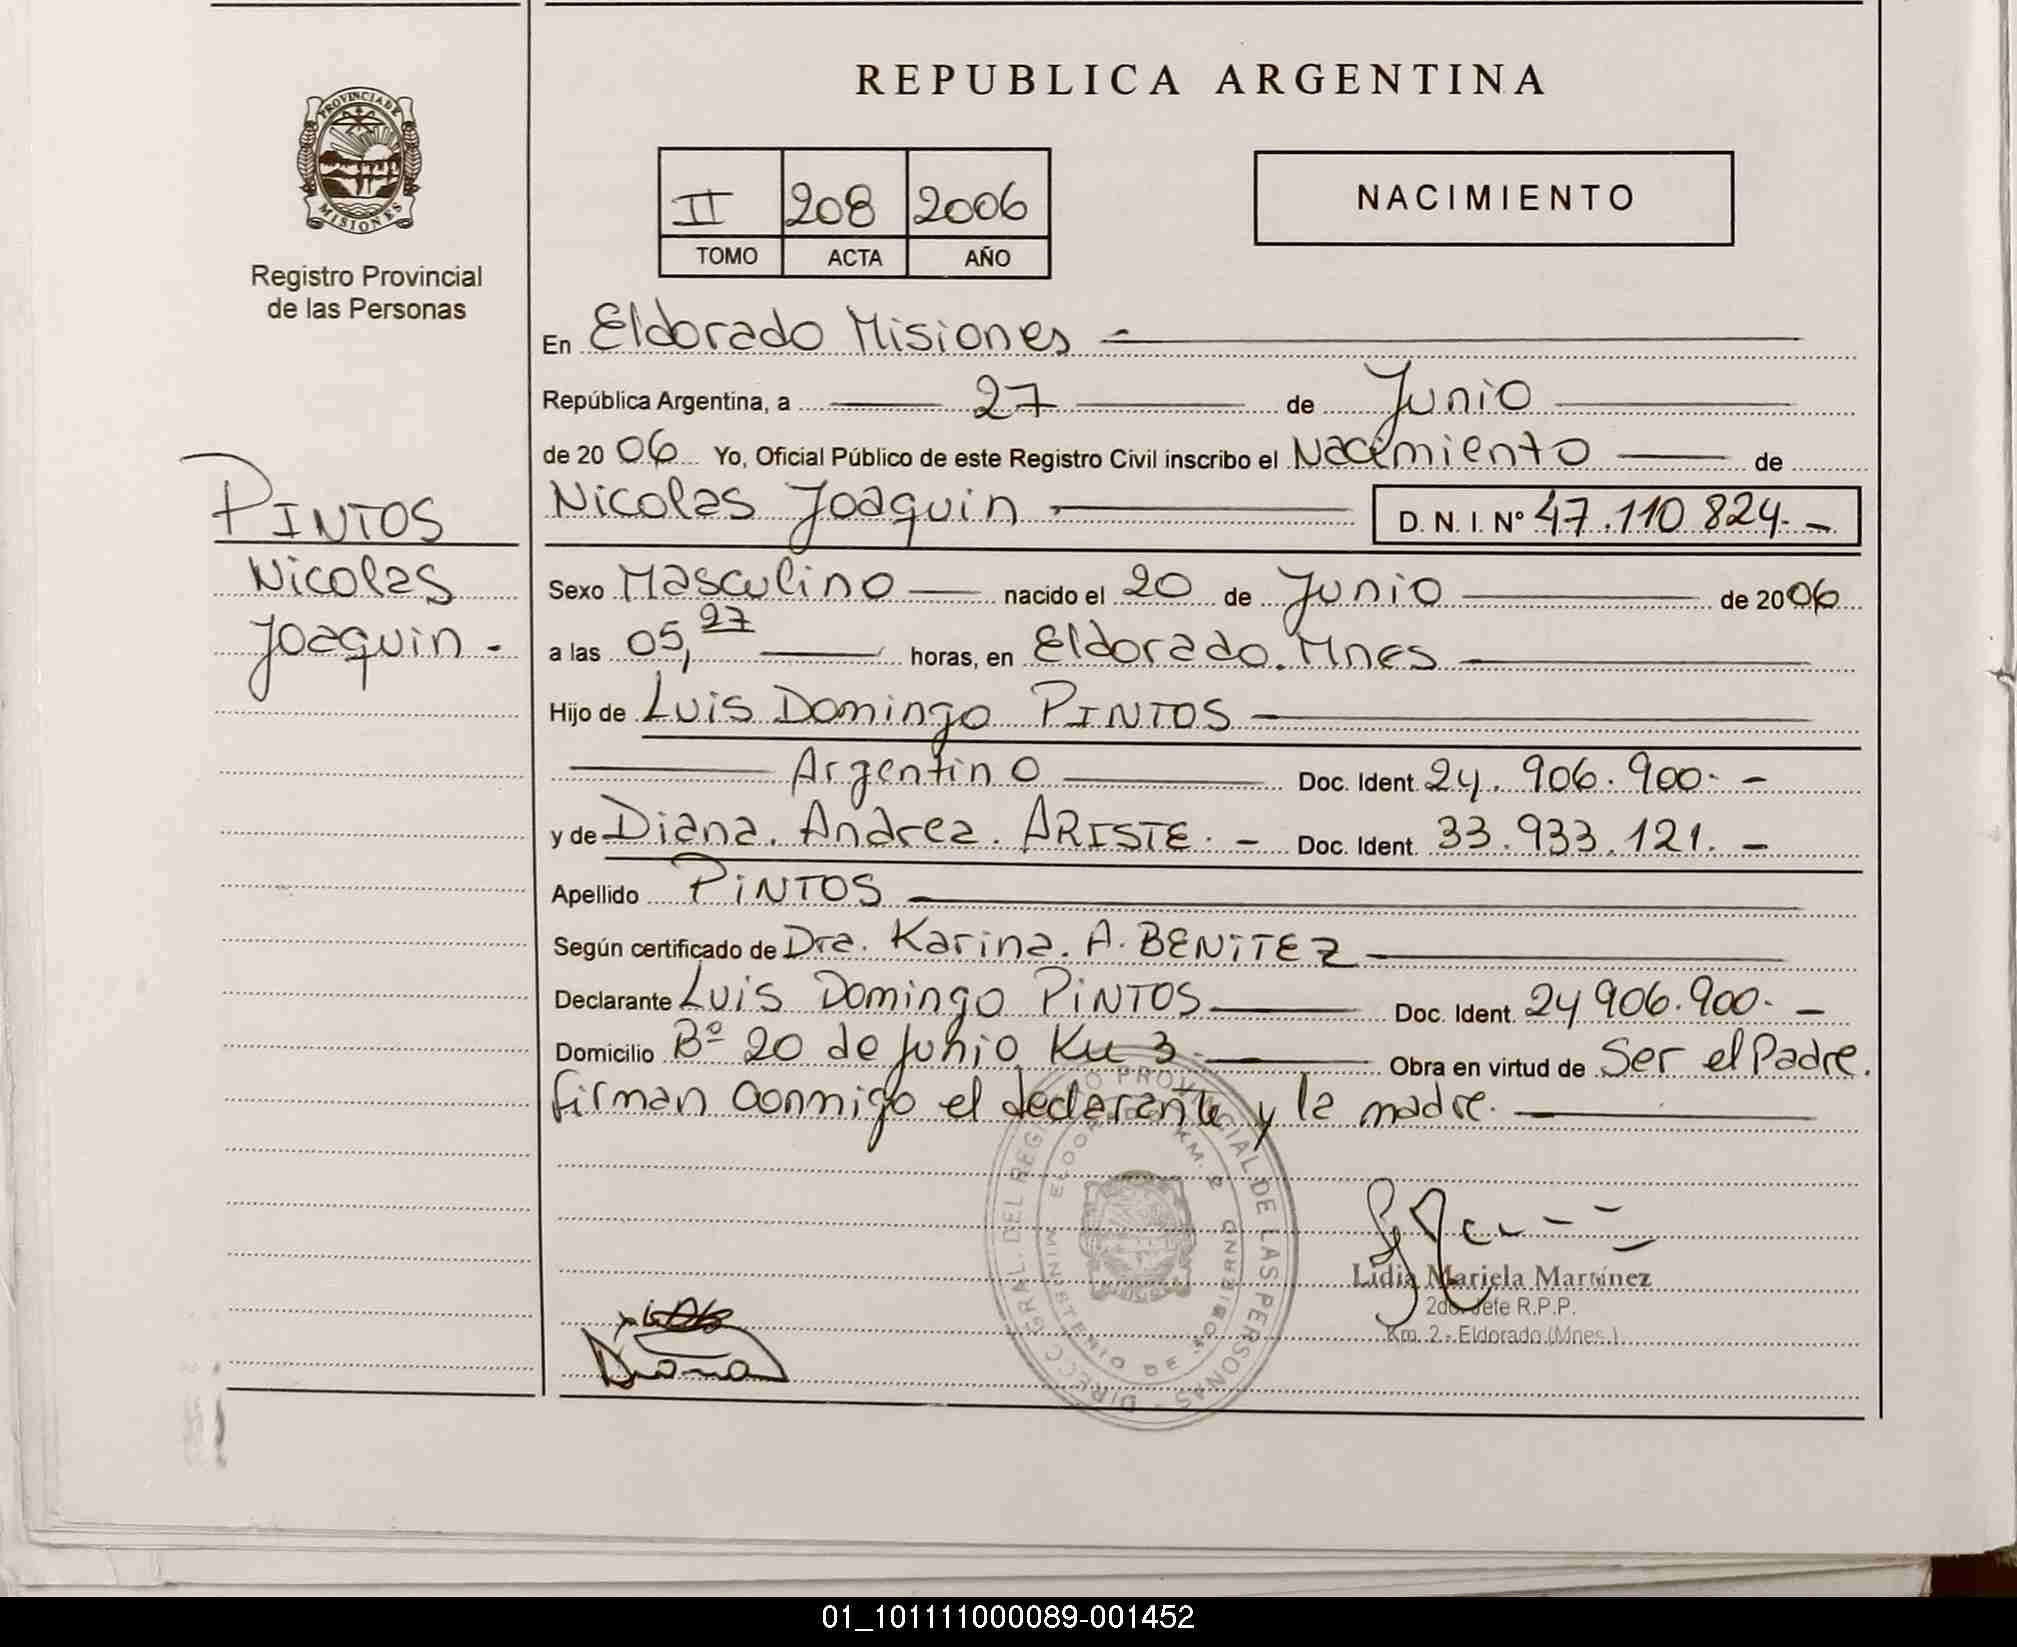 REPUBLICA ARGENTINA
PROVINCIA DE MISIONES
Registro Provincial
de las Personas
II 208 2006
TOMO ACTA AÑO
NACIMIENTO
En Eldorado Misiones
República Argentina, a 27 de Junio
de 2006 Yo, Oficial Público de este Registro Civil inscribo el Nacimiento de
Nicolas Joaquin D. N. I. Nº 47.110.824.-
PINTOS
Nicolas
Joaquin -
Sexo Masculino nacido el 20 de Junio de 2006
a las 05,27 horas, en Eldorado. Mnes
Hijo de Luis Domingo PINTOS
Argentino Doc. Ident. 24.906.900.-
y de Diana. Andrea. ARISTE.- Doc. Ident. 33.933.121.-
Apellido PINTOS
Según certificado de Dra. Karina. A. BENITEZ
Declarante Luis Domingo PINTOS Doc. Ident. 24 906.900.-
Domicilio Bº 20 de Junio Km 3 Obra en virtud de Ser el Padre.
firman conmigo el declarante y la madre.
DIRECC. GRAL. DEL REGISTRO PROVINCIAL DE LAS PERSONAS
MINISTERIO DE GOBIERNO
KM. 2
Lidia Mariela Martinez
2do. Jefe R.P.P.
Km. 2 - Eldorado (Mnes.)
Diana
01_101111000089-001452